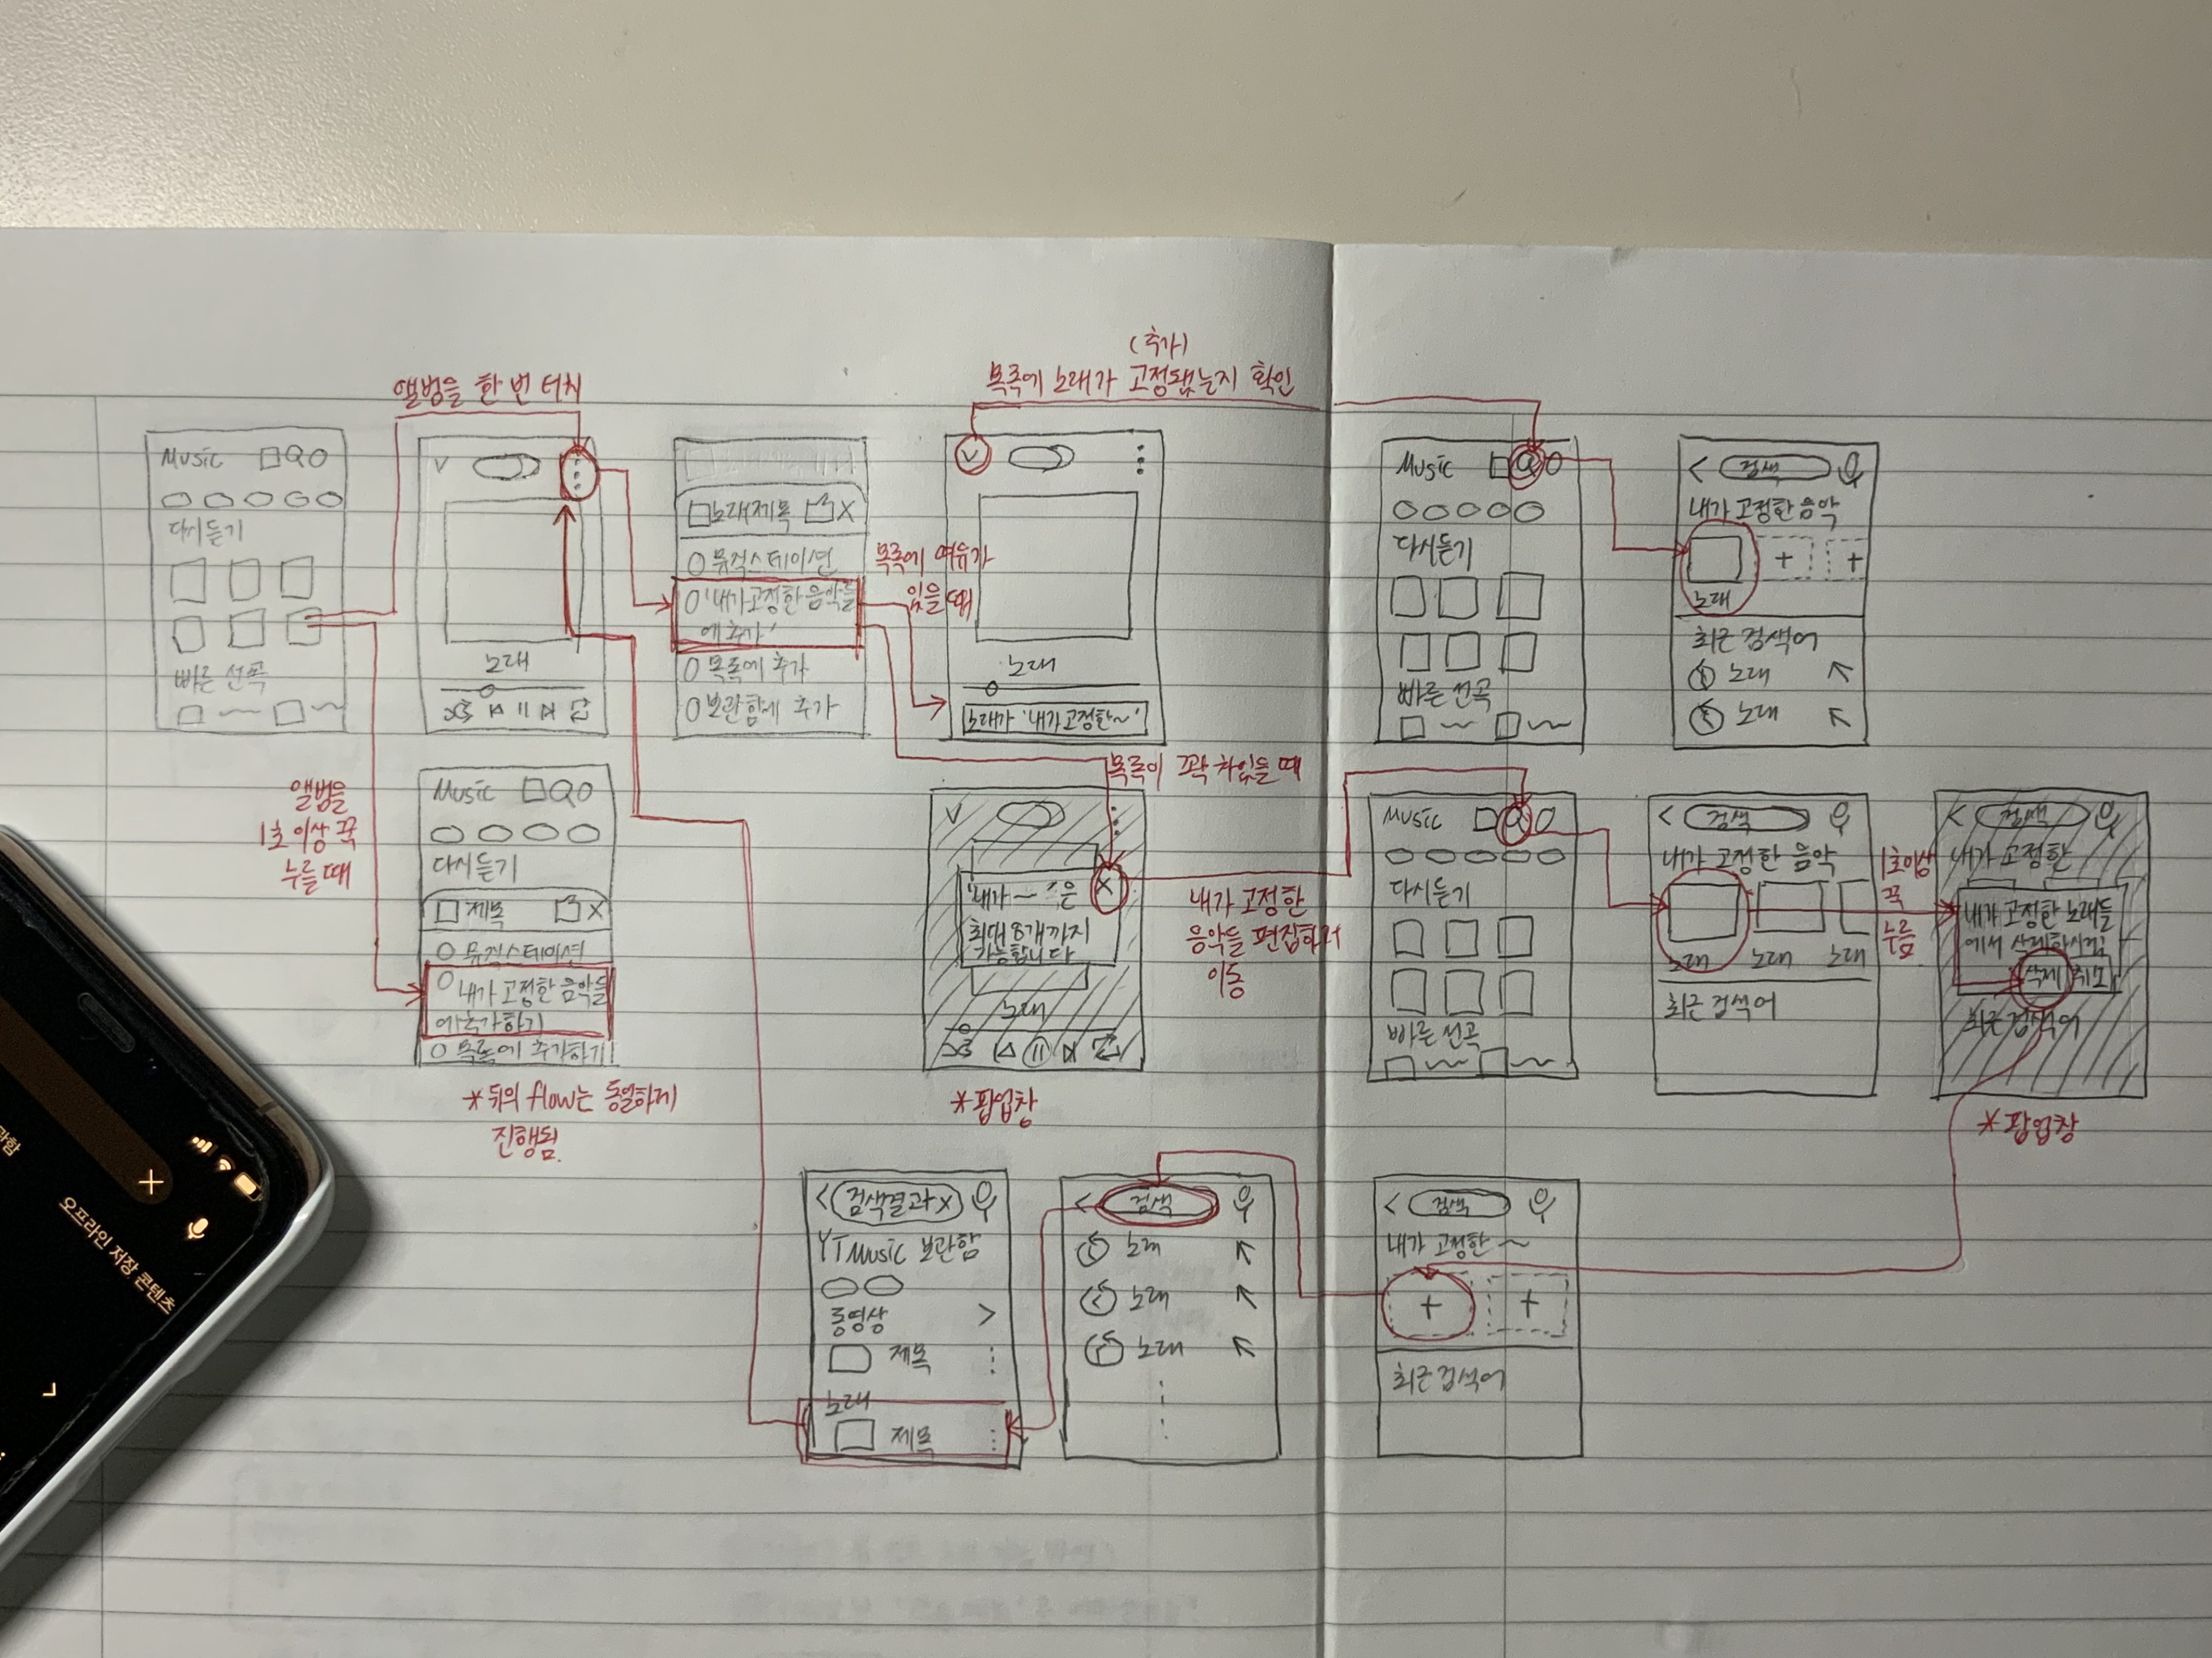 (추가)
앨범을 한 번 터치
목록에 노래가 고정됐는지 확인
Music
다시듣기
빠른 선곡
노래
노래제목 X
뮤직스테이션
'내가 고정한 음악들
에 추가'
목록에 추가
보관함에 추가
목록에 여유가
있을 때
노래
노래가 '내가고정한~'
Music
다시듣기
빠른 선곡
< 검색
내가 고정한 음악
+ +
노래
최근 검색어
노래
노래
앨범을
1초 이상 꾹
누를 때
Music
다시듣기
제목 X
뮤직스테이션
내가 고정한 음악들
에 추가하기
목록에 추가하기
* 뒤의 flow는 동일하게
진행됨.
목록이 꽉 차있을 때
'내가 ~'은 X
최대 8개까지
가능합니다
노래
* 팝업창
내가 고정한
음악들 편집하러
이동
Music
다시듣기
빠른 선곡
< 검색
내가 고정한 음악
노래 노래 노래
최근 검색어
1초이상
꾹
누름
< 검색
내가 고정한
내가 고정한 노래들
에서 삭제하시겠
삭제 취소
최근 검색어
* 팝업창
< 검색결과 X
YT Music 보관함
동영상 >
제목
노래
제목
< 검색
노래
노래
노래
< 검색
내가 고정한 ~
+ +
최근 검색어
+
오프라인 저장 콘텐츠